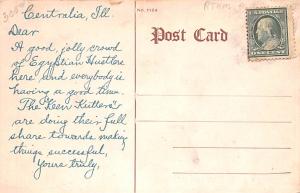 Centralia, Ill.
Dear
A good, jolly crowd
of Egyptian Hustlers
here and everybody is
having a good time.
The "Keen Kutters"
are doing their full
share towards making
things successful,
Yours truly,
Post Card
ONE CENT